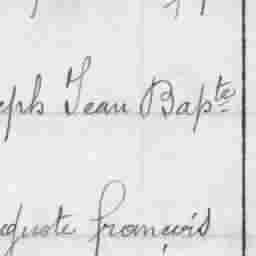 eph Jean Bapte
guste françois